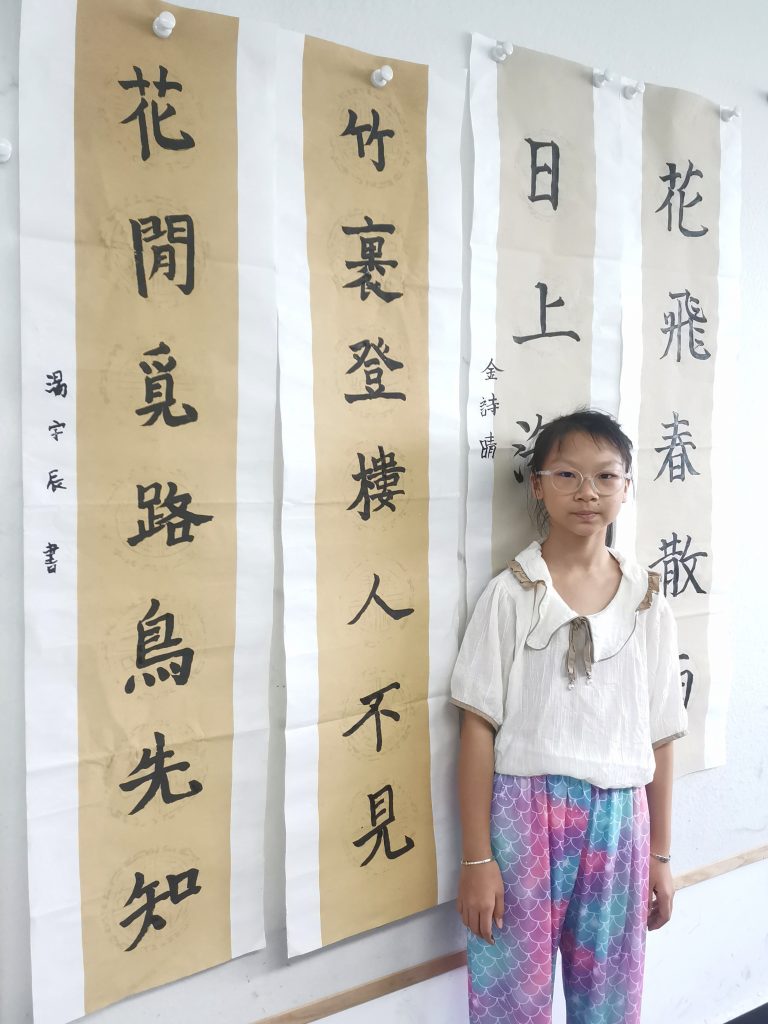 花飛春散
日上
金詩晴
竹裏登樓人不見
花閒覓路鳥先知
湯宇辰書